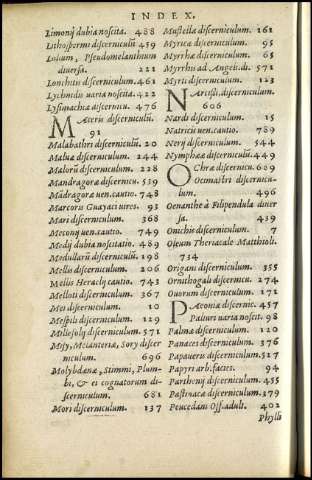 INDEX.
Limonij dubia noscita. 488
Lithospermi discerniculũ 459
Lolium, Pseudomelanthium
diuersa. 221
Lonchitis discerniculum. 461
Lychnidis uaria noscita. 422
Lysimachiæ discernicu. 476
Maceris discerniculũ.
91
Malabathri discerniculũ. 20
Maluæ discerniculum. 244
Malorũ discerniculum. 228
Mandragoræ discernicu. 539
Mãdragoræ uen.cautio. 748
Marcoris Guayaci uires. 93
Mari discerniculum. 368
Meconij uen.cautio. 749
Medij dubia noscitatio. 489
Medullarũ discerniculũ. 198
Mellis discerniculum. 206
Mellis Heracly cautio. 743
Meliloti discerniculum. 367
Mei discerniculum. 10
Mespili discerniculum. 129
Millefolij discerniculum. 571
Misy, Melanteriæ, Sory discer
niculum. 696
Molybdænæ, Stimmi, Plum-
bi, & ei cognatorum di-
scerniculum. 681
Mori discerniculum. 137
Mustellæ discerniculum. 161
Myricæ discerniculum. 95
Myrrhæ discerniculum. 65
Myrrhis ad Angeli.di. 571
Myrti discerniculum. 123
Narcissi.discerniculum.
606
Nardi discerniculum. 15
Natricis uen.cautio. 789
Nerij discerniculum. 544
Nymphææ discerniculũ. 449
Ochræ discerniculum. 689
Ocimastri discernicu-
lum. 496
Oenanthe à Filipendula diuer
sa. 439
Onichis discerniculum. 7
Oleum Theriacale Matthioli.
734
Origani discerniculum. 355
Ornithogali discernicu. 274
Ouorum discerniculum. 171
Pæoniæ discernic. 457
Paliuri uaria noscit. 98
Palmæ discerniculum. 120
Panaces discerniculum. 376
Papaueris discerniculum. 527
Papyri arb.facies. 94
Parthenij discerniculum. 455
Pastinacæ discerniculum. 379
Peucedani Off.adult. 402
Phylli